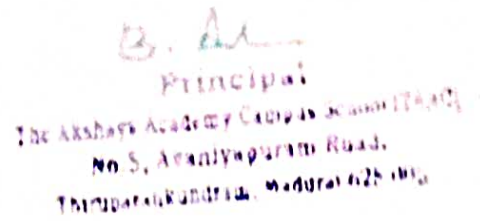 Principal
The Akshaya Academy Campus School
No 5, Avaniyapuram Road,
Thiruparankundram, Madurai 625